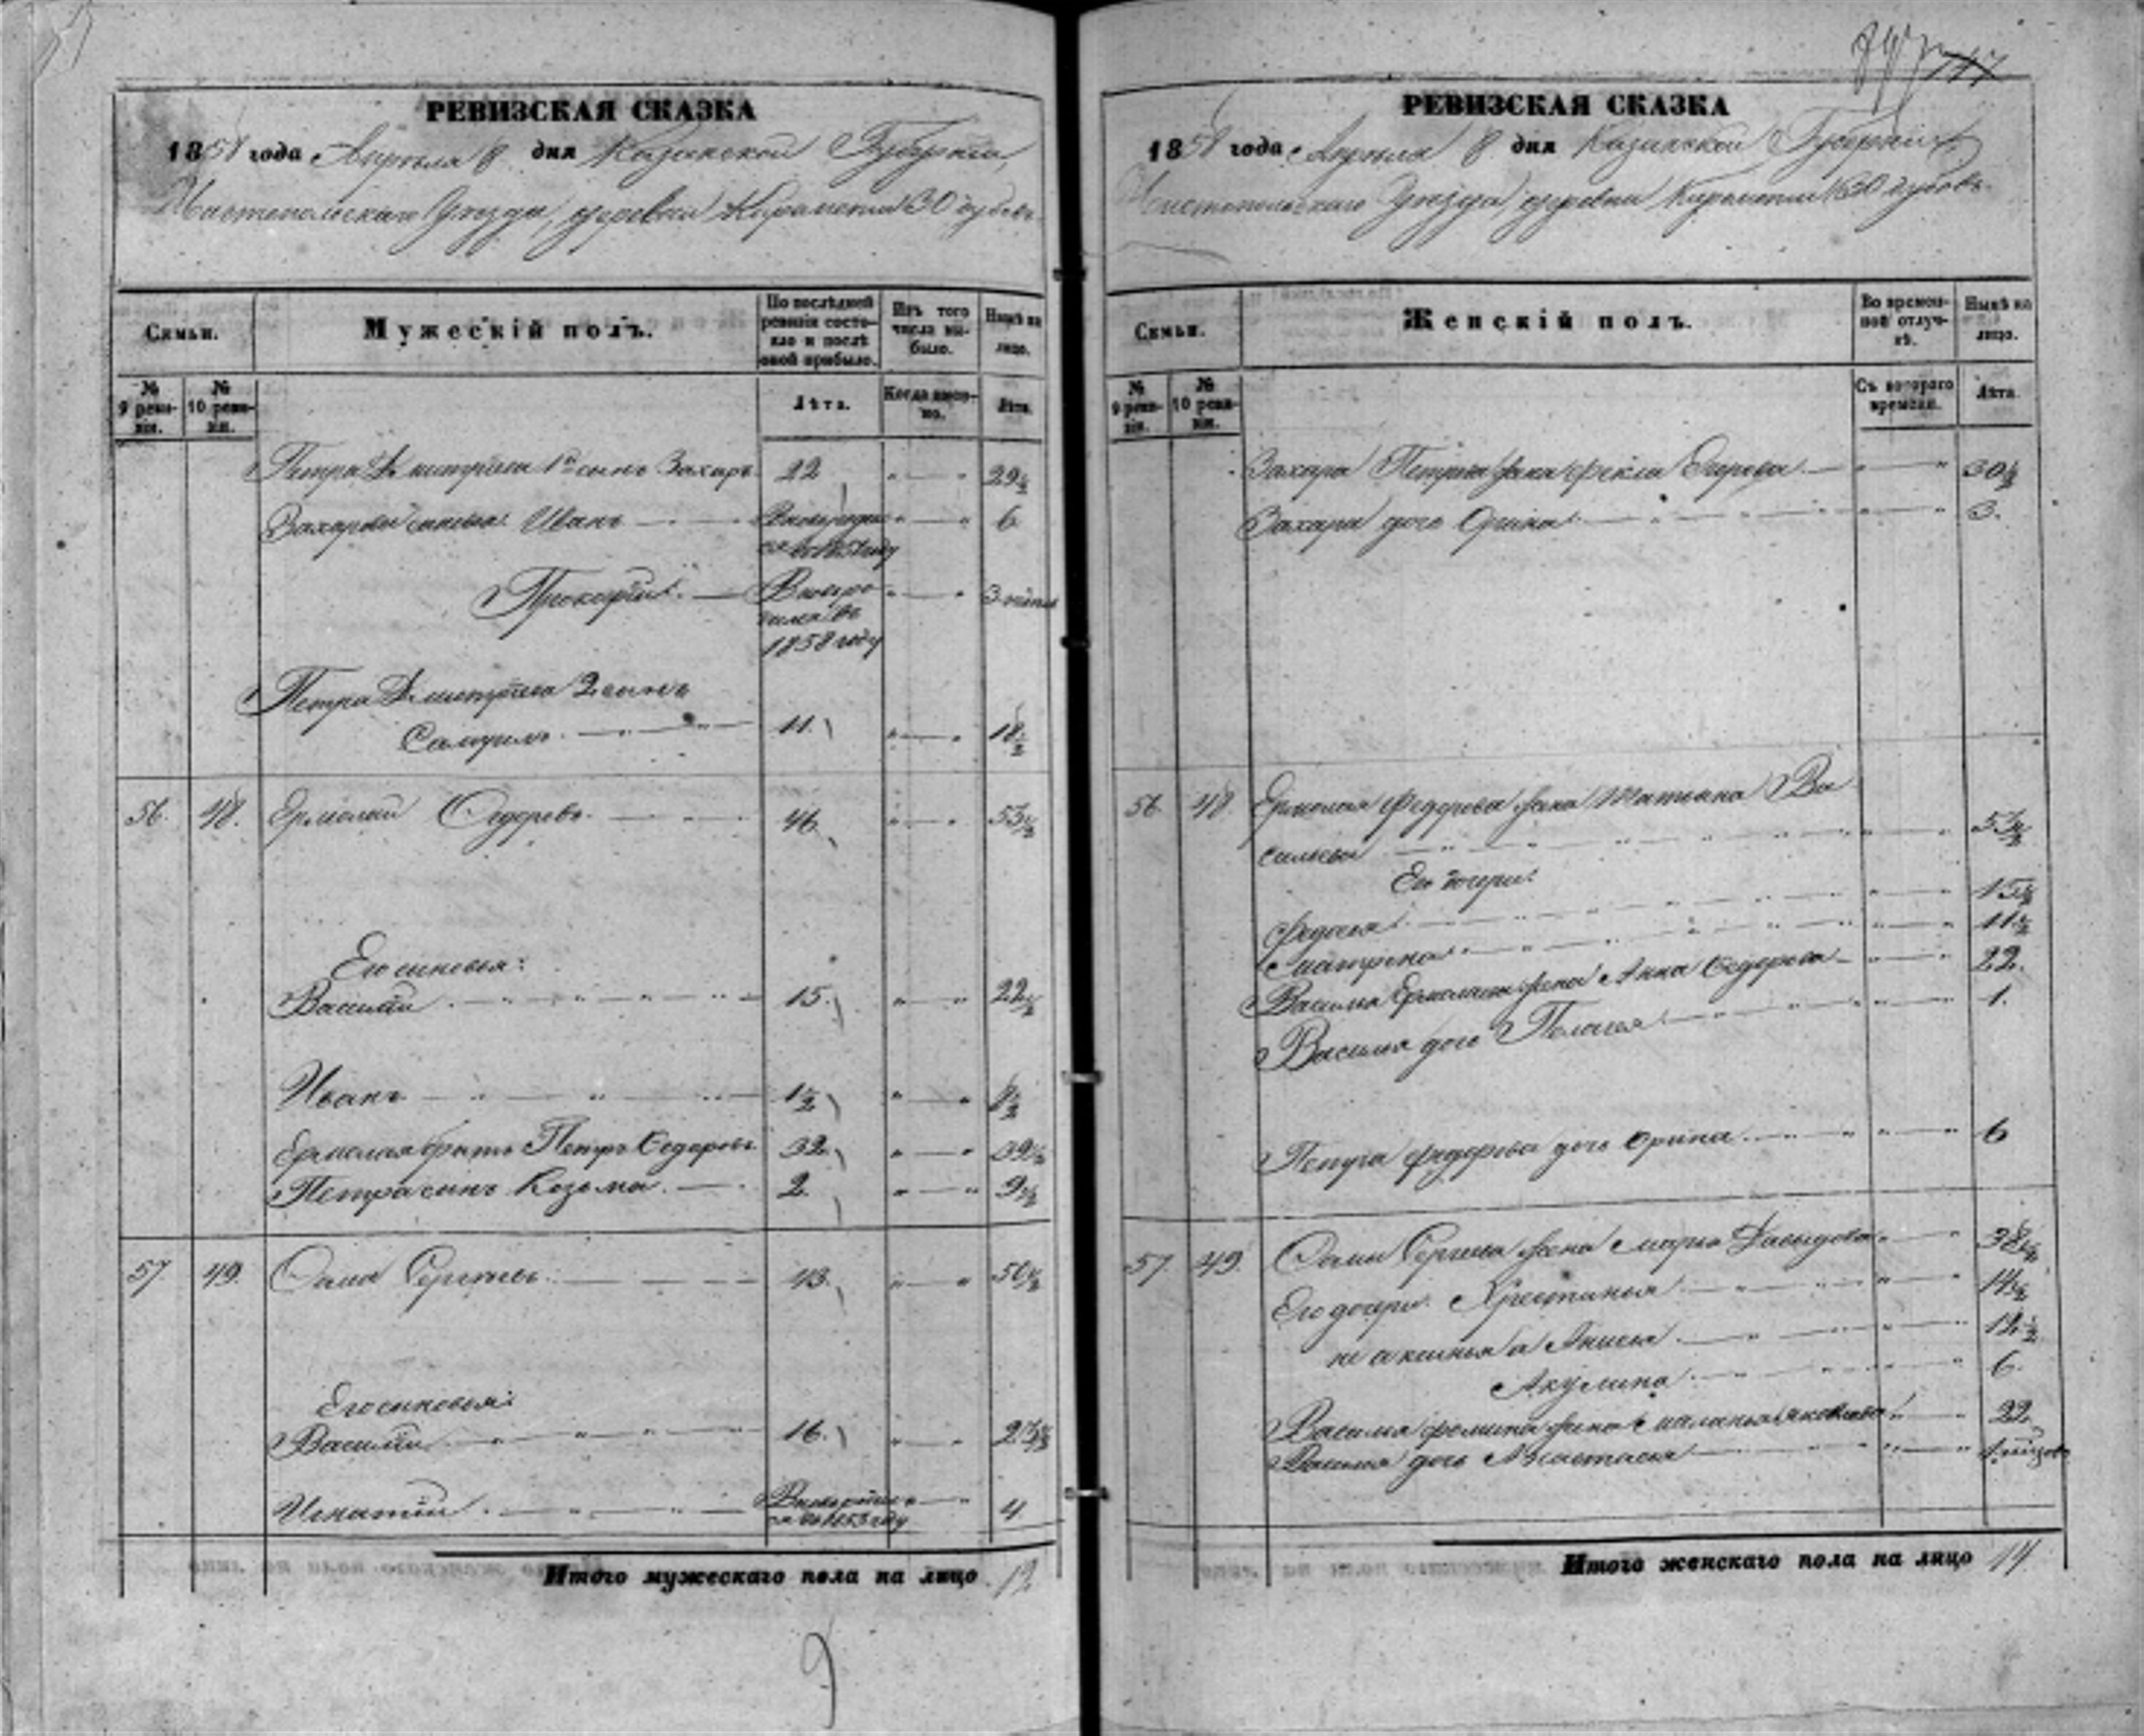 РЕВИЗСКАЯ СКАЗКА
1858 года Апреля 8 дня Казанской Губернии,
Чистопольского Уезда, деревни 30 дубовъ
Семьи.
Мужескій полъ.
По послѣдней ревизіи состояло и послѣ оной прибыло.
Изъ того числа выбыло.
Нынѣ на лицо.
№ 9 ревизіи.
№ 10 ревизіи.
Лѣта.
Когда именно.
Лѣта.
Петра Дмитріева 1й сынъ Захаръ 22 29½
Захаровы сыновья: Иванъ 6
Прокофій
1858 году
Петра Дмитріева 2 сынъ
Самуилъ 11 18½
56. 48. Ермолай Федоровъ 46 53½
Его сыновья:
Василій 15. 22½
Иванъ 1½ 8½
Ермолая братъ Петръ Федоровъ 32. 39½
Петра сынъ Козьма 2. 9½
57 49. Фома Сергѣевъ 43. 50½
Его сыновья:
Василій 16. 23½
Игнатій 4
Итого мужескаго пола на лицо 12
РЕВИЗСКАЯ СКАЗКА
1858 года Апреля 8 дня Казанской Губерніи,
Чистопольскаго Уезда, деревни 30 дубовъ
Семьи.
Женскій полъ.
Во временной отлучкѣ.
Нынѣ на лицо.
№ 9 ревизіи.
№ 10 ревизіи.
Съ котораго времени.
Лѣта.
Захара Петрова жена Фекла Егорова 30½
Захара дочь Орина 3.
56. 48. Ермолая Федорова жена Татьяна Ва
сильева 53½
Его дочери:
Федосья 15½
Матрена 11½
Василья Ермолаева жена Анна Федорова 22.
Василья дочь Пелагея 1.
Петра Федорова дочь Орина 6
57. 49. Фомы Сергеева жена Марья Давыдова 38½
Его дочери: Крестинья 14½
не Аксинья а Анисья 12½
Акулина 6.
Василья Фомина жена Маланья Яковлева 22
Василья дочь Анастасья
Итого женскаго пола на лицо 14